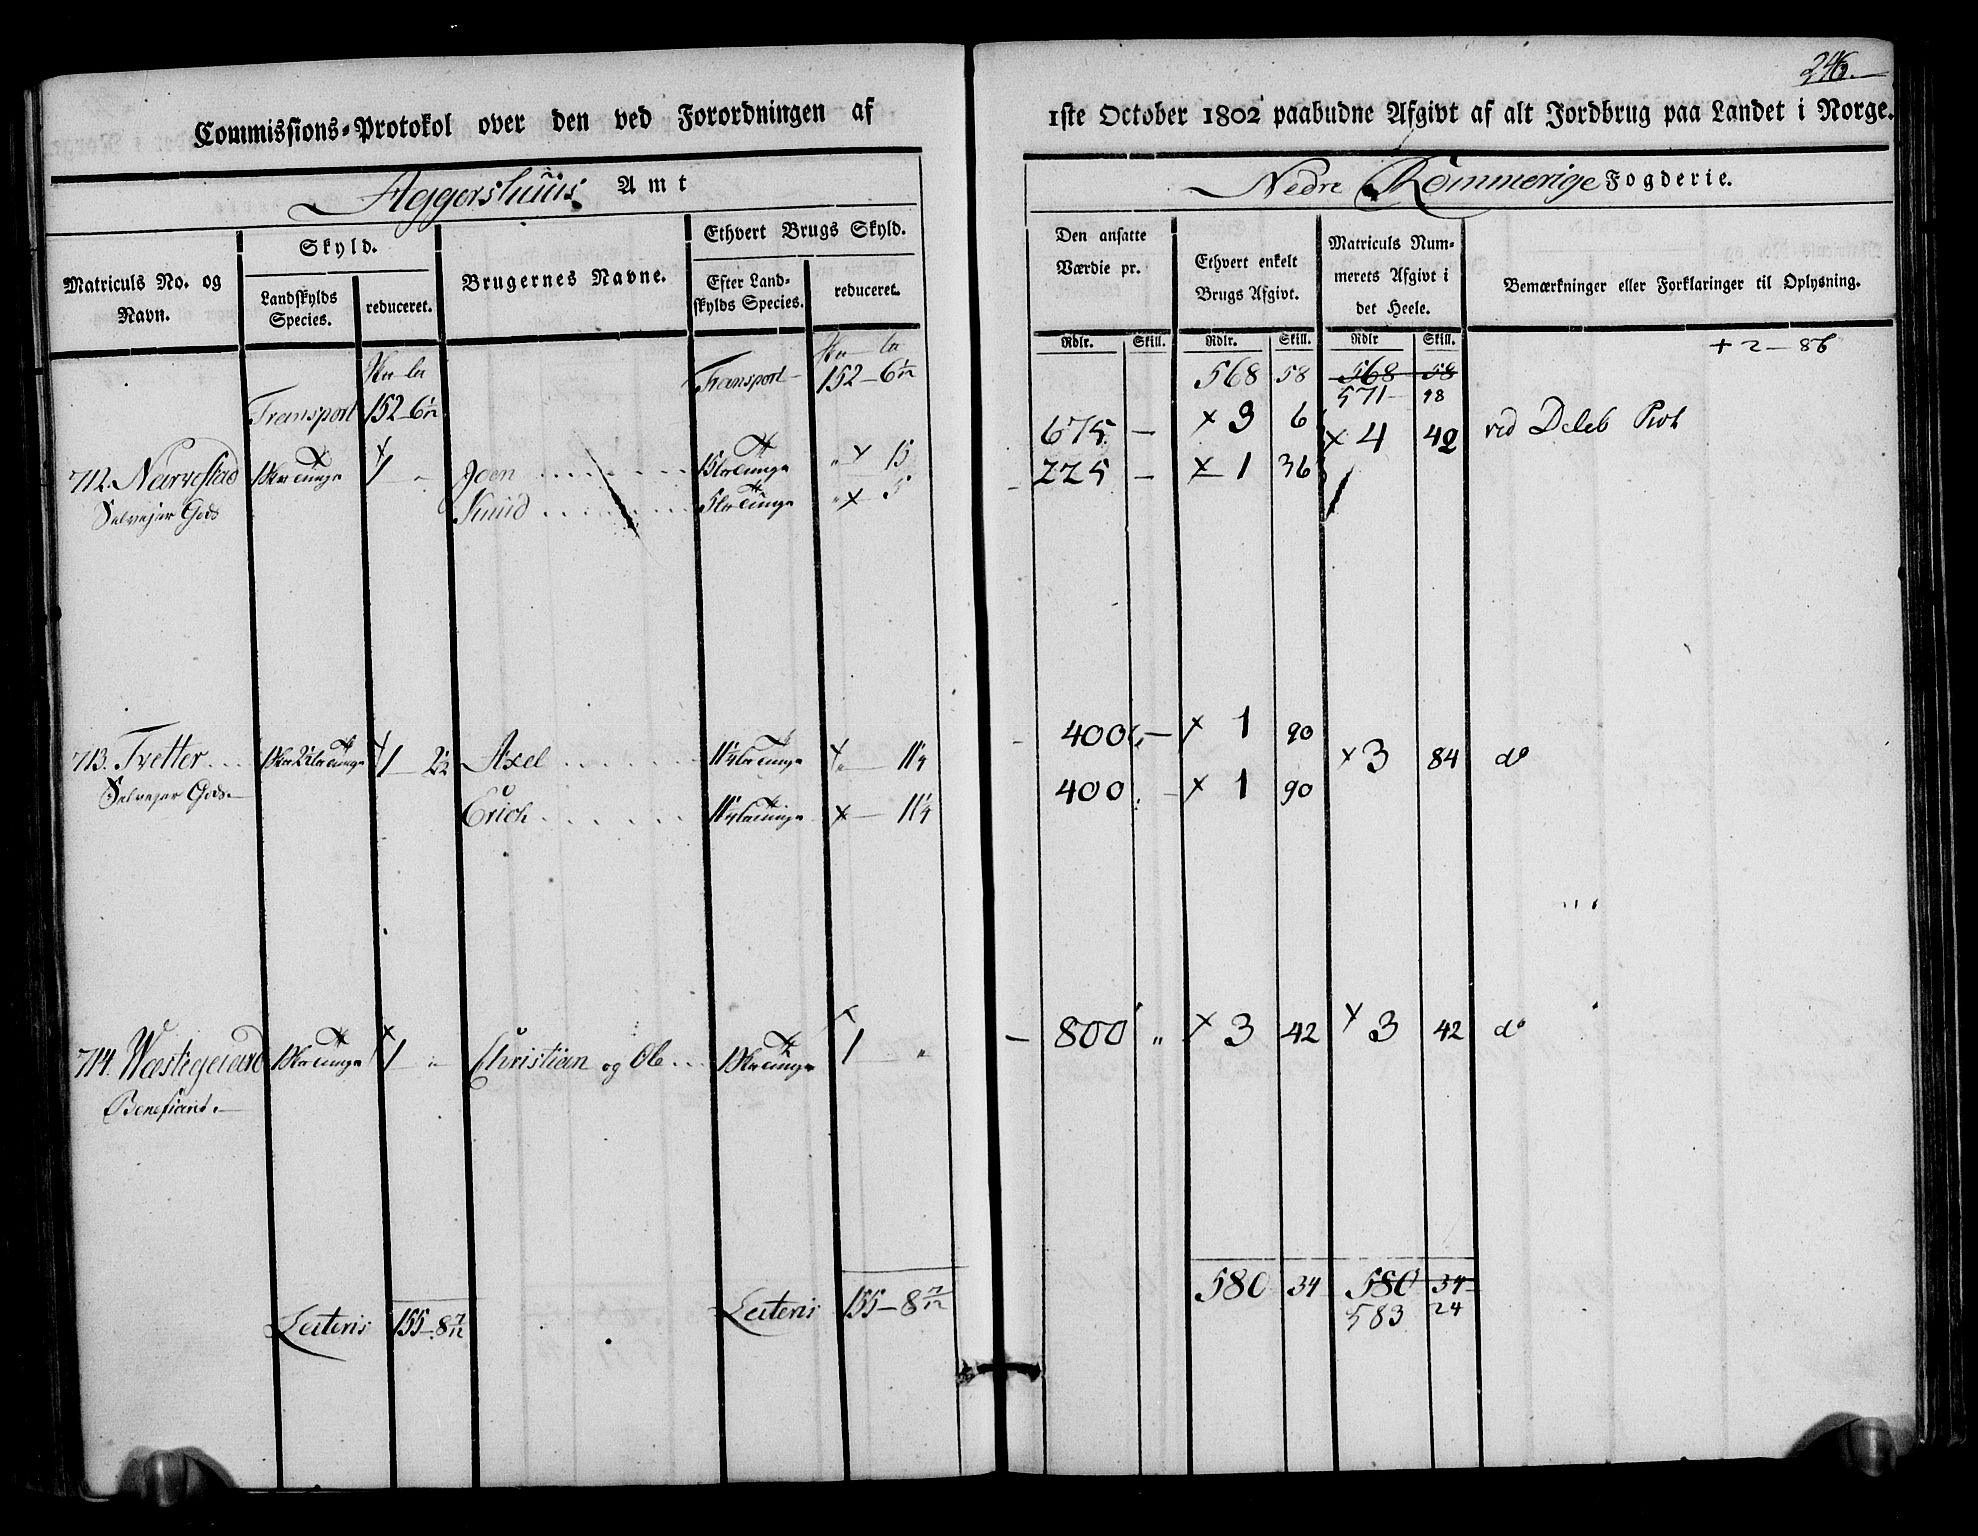 246.
Commissions-Protokol over den ved Forordningen af
1ste October 1802 paabudne Afgivt af alt Jordbrug paa Landet i Norge.
Aggershuus Amt
Nedre Rommerige Fogderie.
Matriculs No. og Navn.
Skyld.
Landskylds Species.
reduceret.
Brugernes Navne.
Ethvert Brugs Skyld.
Efter Landskylds Species.
reduceret.
Den ansatte Værdie pr.
Ethvert enkelt Brugs Afgivt.
Matriculs Nummerets Afgivt i det Heele.
Bemærkninger eller Forklaringer til Oplysning.
Rdlr. Skill. Rdlr. Skill. Rdlr Skill.
+ 2 - 86
Transport 152 - 6 1/12 Transport 152 - 6 1/12 568 58 568 58
571 - 48
712. Narvestad 1 " Joen 15 675 - x 3 6 x 4 42 ved Deleb Prot
Selvejer Gods Knud 5 225 - x 1 36
713. Tvetter 1 - 2 1/2 Axel 11 1/4 400 - x 1 90 x 3 84 do
Selvejer Gods Erich 11 1/4 400 - x 1 90
714. Wæstigaard 1 " Christian og Ole 1 " 800 " x 3 42 x 3 42 do
Beneficeret
580 34 580 34
583 24
Lateris 155 - 8 7/12 Lateris 155 - 8 7/12